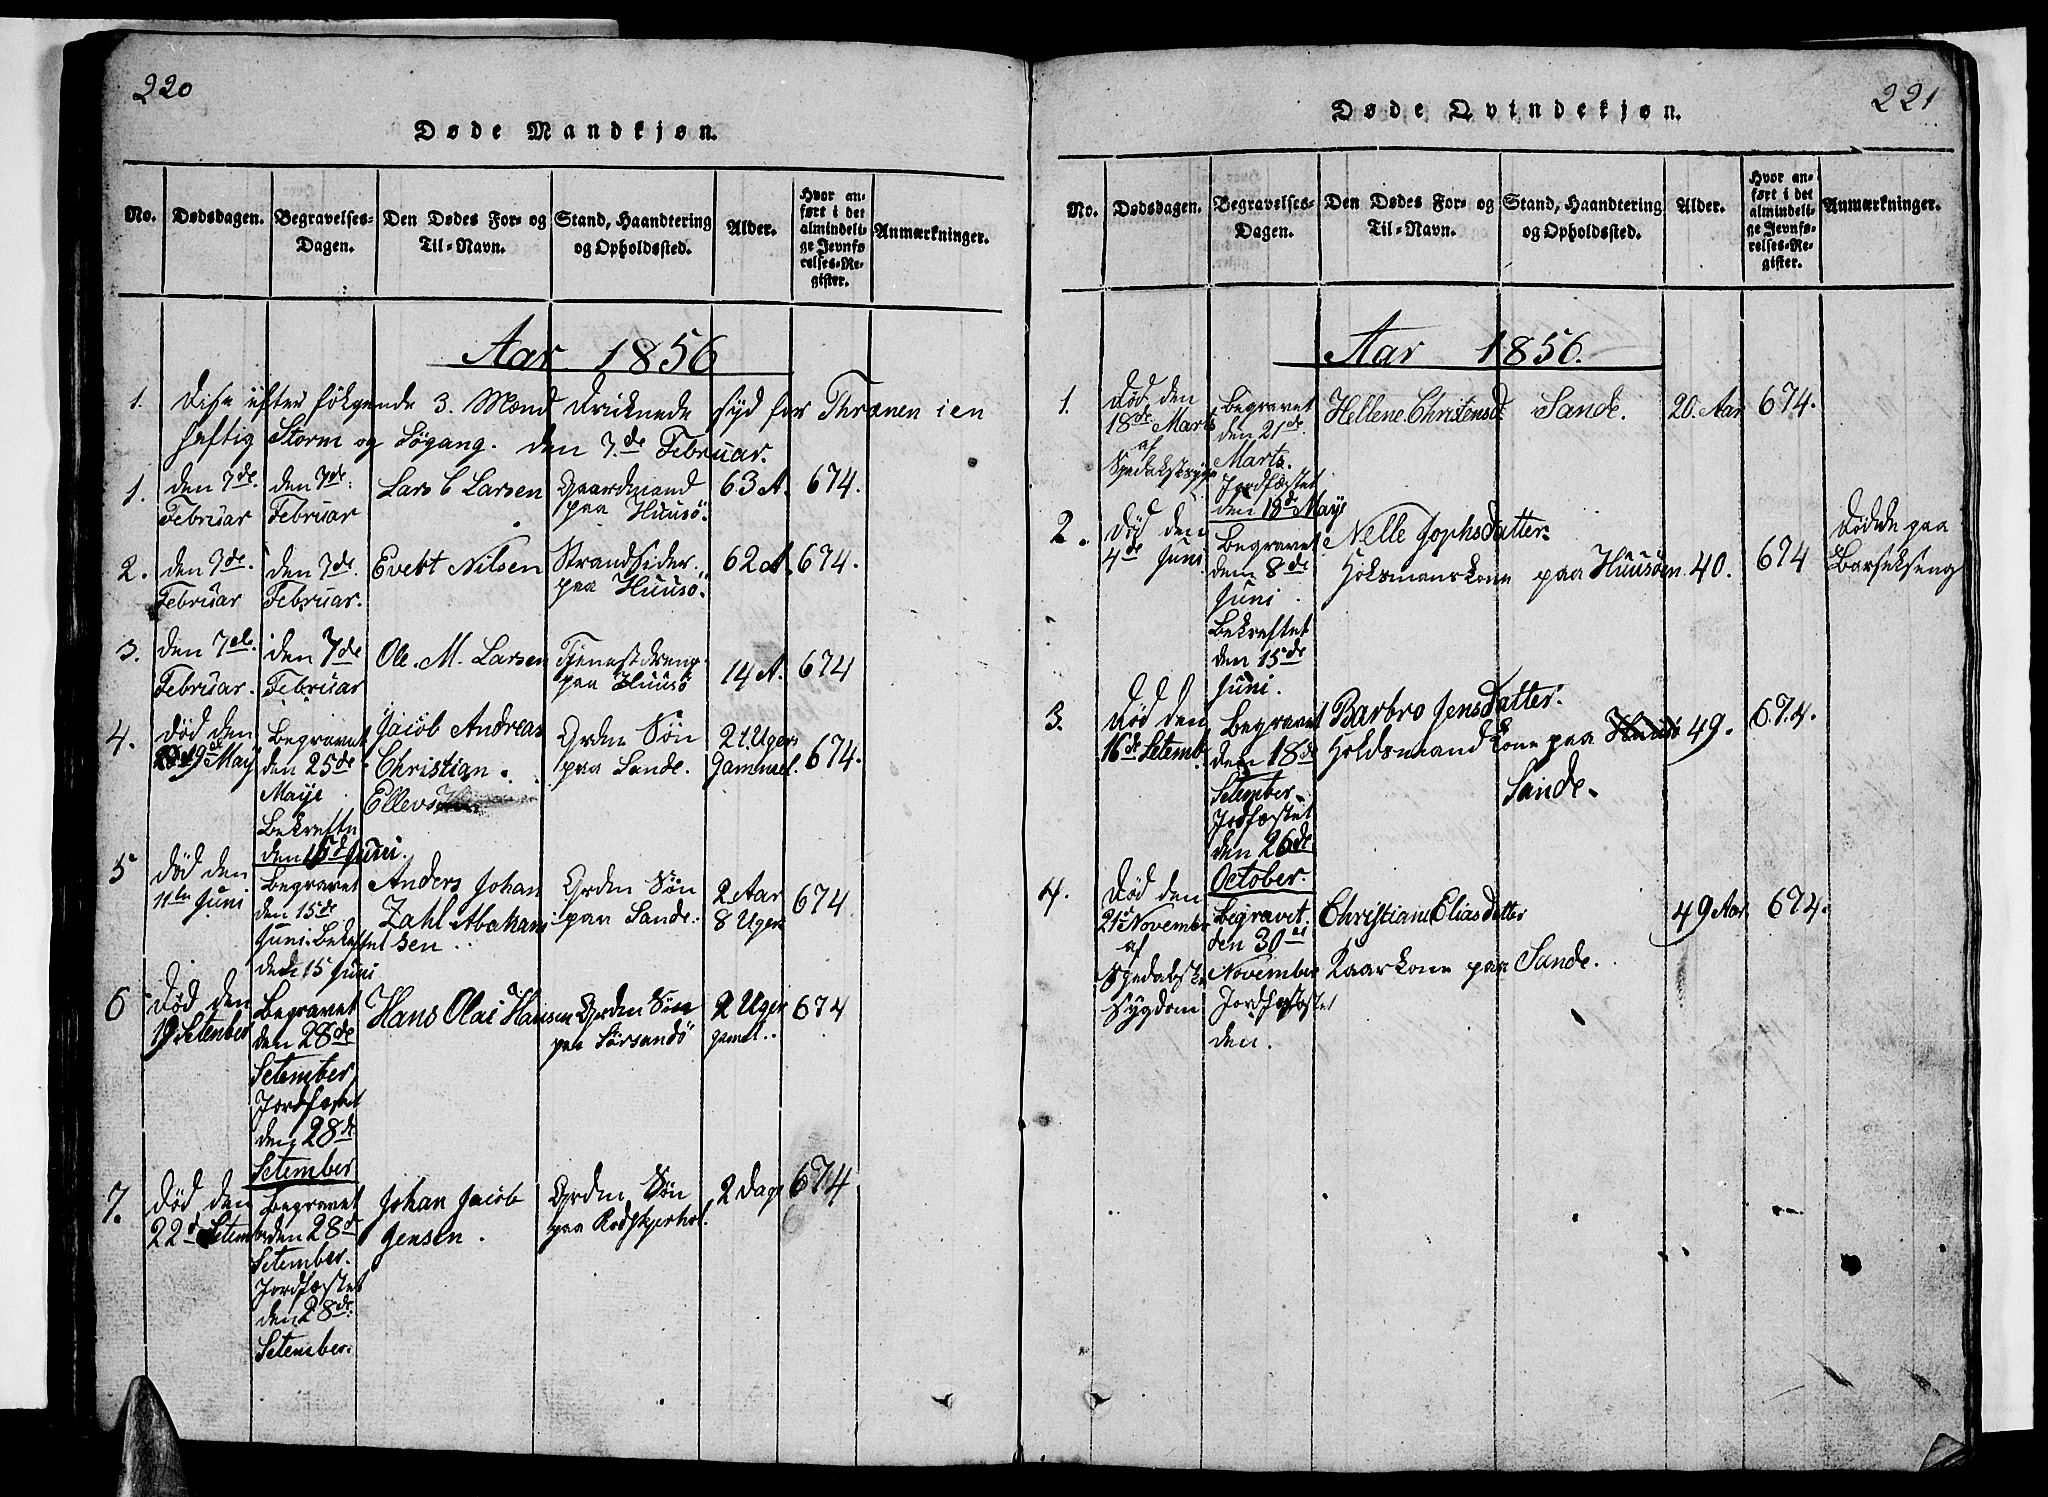 220
Døde Mandkjøn.
No. Dødsdagen. Begravelses-Dagen. Den Dødes For- og Til-Navn. Stand, Haandtering og Opholdssted. Alder. Hvor anført i det almindelige Jevnførelses-Register. Anmærkninger.
Aar 1856
1. Dise efter følgende 3. Mænd Drücknede syd for Thrænen i en
heftig Storm og Søgang. den 7de Februar.
1. den 7de. Februar den 7de: Februar Lars C Larsen Gaardmand paa Huusö. 63 A. 674.
2. den 7de. Februar den 7de. Februar. Evert Nilsen Strandsider paa Huusö. 62 A. 674.
3. den 7de. Februar. den 7de Februar Ole. M. Larsen Tjenestdreng paa Huusö 14 A. 674
4. Død den 19de May Begravet den 25de Maye Bekreftn den 15de Juni. Jacob Andreas Christian. Ellevs Grden Søn paa Sande. 21 Uger Gammel. 674.
5 Død den 11te Juni Begravet den 15de Juni. Bekreftet den 15 Juni Anders Johan Zahl Abrahamsen Grden Søn paa Sande. 2 Aar 8 Uger 674
6 Død den 19 Setember Begravet den 28de Setember, Jordfæstet den 28de Setember Hans Olai Hansen Grden Søn paa Sörsandö 2 Uger gamel.. 674
7. Død den 22d Setemb Begravet den 28de Setember. Jordfæstet den 28de. Setember. Johan Jacob Jensen. Grden Søn paa Rodskjerhol. 2 Dage 674
221
Døde Qvindekjøn.
No. Dødsdagen. Begravelses-Dagen. Den Dødes For- og Til-Navn. Stand, Haandtering og Opholdssted. Alder. Hvor anført i det almindelige Jevnførelses-Register. Anmærkninger.
Aar 1856.
1. Død, den 18de Marts af Spedalsksyge Begravet den 21de. Marts. Jordfæstet den 18de Maye Hellene. Christensd. Sande. 20. Aar 674.
2. Død den 4de Juni Begravet den 8de Juni. Bekreftet den 15de Juni. Nelle JophsDatter. Holsmanskone paa Huusöen 40. 674 Dødede paa Barselseng
3. Død den 16de Setemb. Begravet den 18de Setember. Jodfæstet den 26de. October. Barbro JensDatter. Holdsmandkone paa Sande. 49. 674.
4. Død den 21de November af Spedalske sygdom Begravet. den 30te November Jordfæstet den. Christiane EliasDatter Kaarkone paa Sande. 49 Aar 674.